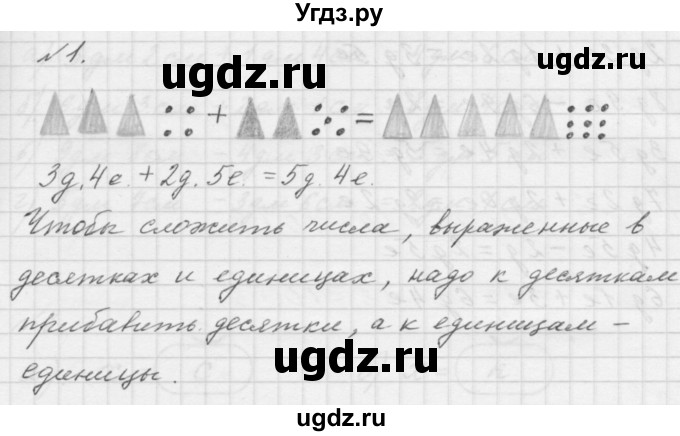 Угдз.ру
№1.
ugdz.ru
ugdz.ru
+ =
3д. 4е. + 2д. 5е. = 5д. 4е.
Чтобы сложить числа, выраженные в
десятках и единицах, надо к десяткам
прибавить десятки, а к единицам –
единицы.
ugdz.ru
ugdz.ru